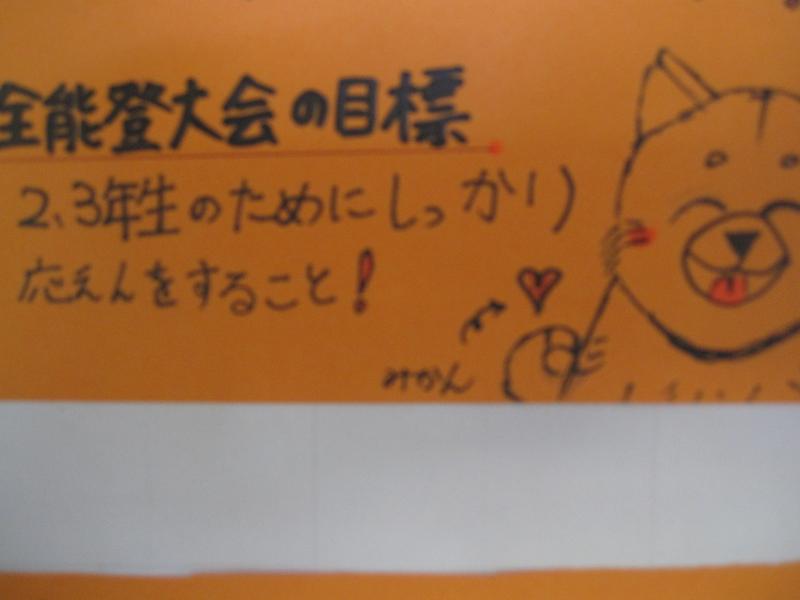 全能登大会の目標
2、3年生のためにしっかり
応えんをすること!
みかん